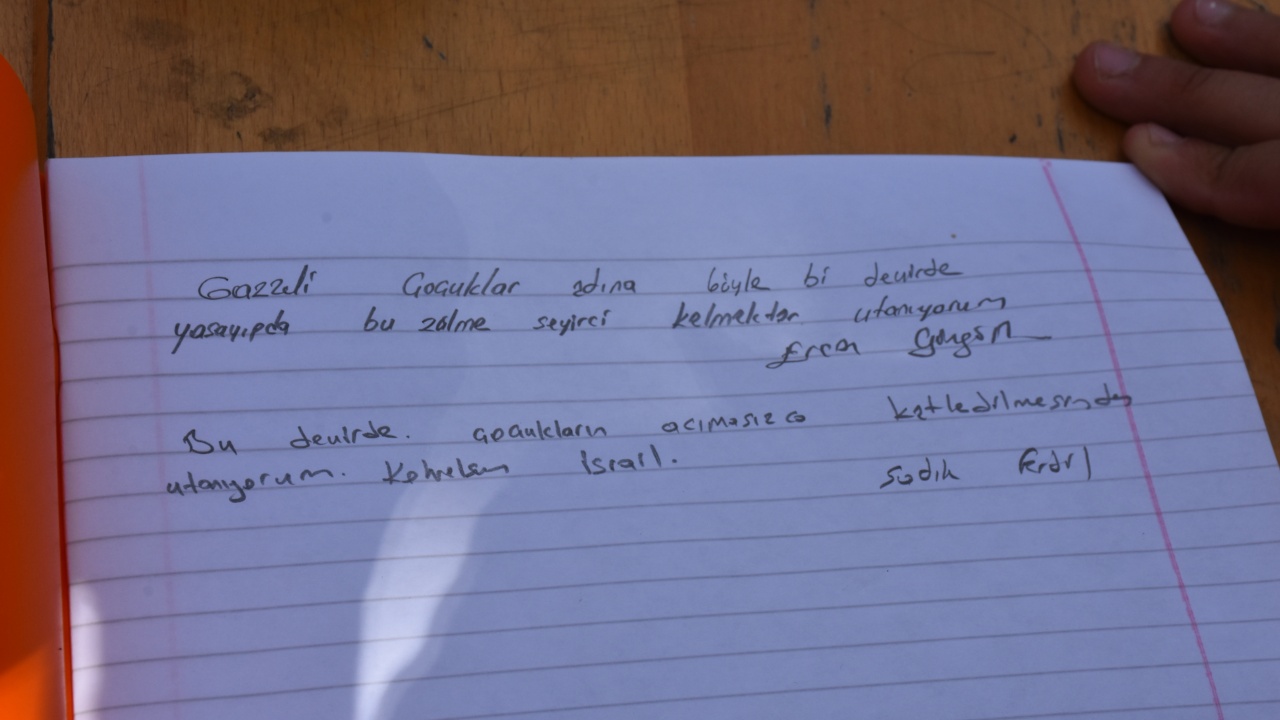 Gazzeli Çocuklar adına böyle bi devirde
yaşayıpda bu zülme seyirci kelmekten utanıyorum
Eren Görgün
Bu devirde. çocukların acımasızca katledilmesinden
utanıyorum. Kahrolsun İsrail.
Sadık